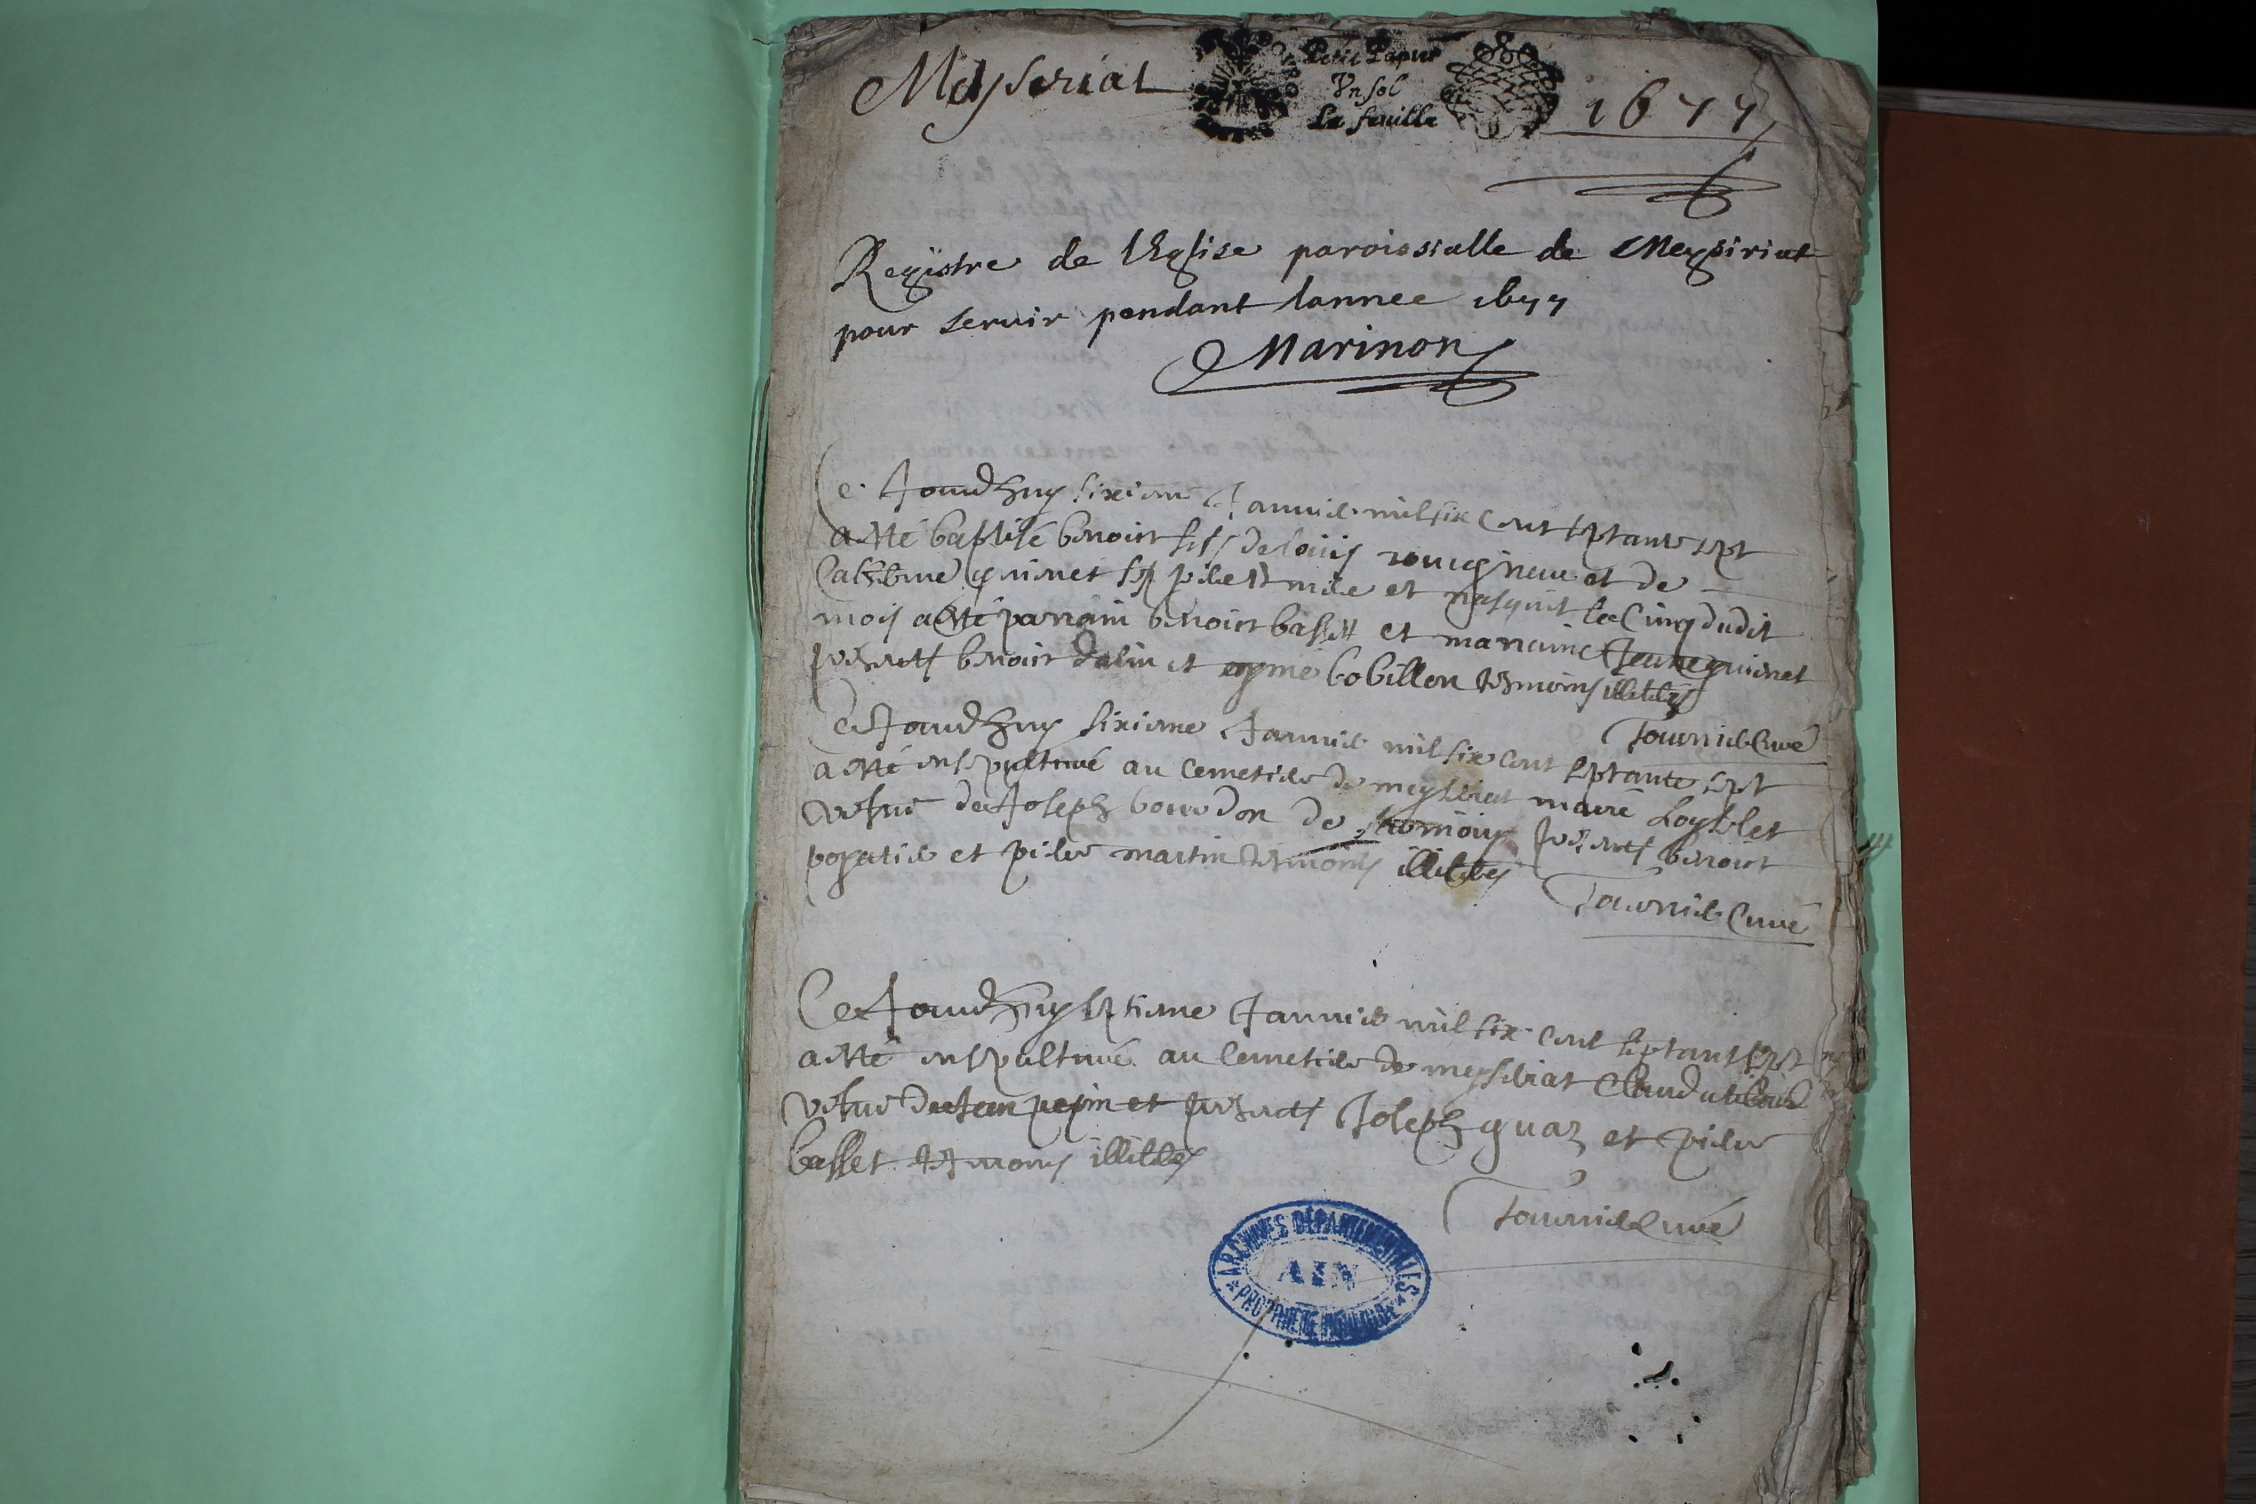 Meyseriat
Petit Papier
Vn sol
La feuille
1677
Registre de lEglise paroissialle de Meysiriat
pour seruir pendant lannee 1677
Marinon
Ce Jourdhuy sixieme Januier mil six cent septante sept
a esté baptisé benoist fils de louis et de
Catherine guinet ses pere et mere et nasquit le Cinq dudit
mois a esté parrain benoist basset et marraine Jeanne guinet
presents benoist dalin et aymé bobillon tesmoins illiteres
Tournier Curé
Ce Jourdhuy sixieme Januier mil six cent septante sept
a esté ensepulturé au cemetiere de meyseriat
vefue de Joseph bourdon de presents benoist
et pierre martin tesmoins illiteres
Tournier Curé
Ce Jourdhuy septieme Januier mil six cent septante sept
a esté ensepulturé au cemetiere de meyseriat
vefue de Jean pepin et presents Joseph guaz et pierre
basset tesmoins illiteres
Tournier Curé
ARCHIVES DÉPARTEMENTALES
AIN
PROPRIÉTÉ PUBLIQUE